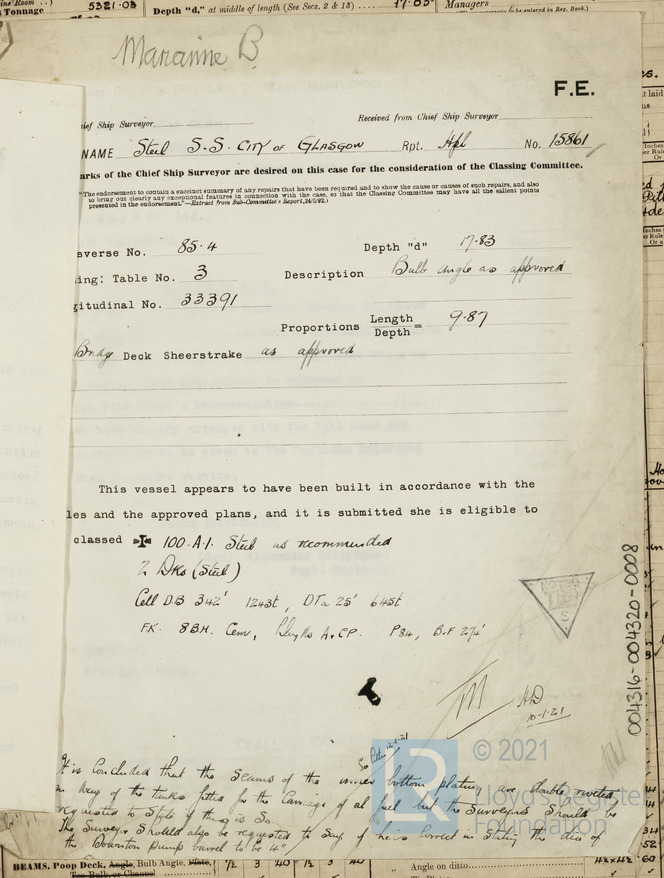 Tonnage 5321.03 Depth "d," at middle of length (See Secs. 2 & 13) .... 17.83 Managers
(to be entered in Reg. Book.)
Marianne B.
F.E.
ief Ship Surveyor Received from Chief Ship Surveyor
NAME Steel S.S. CITY OF GLASGOW Rpt. Hpl No. 15861
arks of the Chief Ship Surveyor are desired on this case for the consideration of the Classing Committee.
"The endorsement to contain a succinct summary of any repairs that have been required and to show the cause or causes of such repairs, and also
to bring out clearly any exceptional features in connection with the case, so that the Classing Committee may have all the salient points
presented in the endorsement."—Extract from Sub-Committee's Report, 24/5/92.)
sverse No. 85.4 Depth "d" 17.83
ing: Table No. 3 Description Bulb angle as approved
gitudinal No. 33391
Proportions Length
Depth = 9.87
Bridge Deck Sheerstrake as approved
This vessel appears to have been built in accordance with the
les and the approved plans, and it is submitted she is eligible to
classed ✠ 100.A.1. Steel as recommended
2 Dks (Steel)
Cell DB 342' 1243t, DTa 25' 645t
F.K. 8BH. Cem, Lloyds A.&CP. P84, B.F 274'
NOTED
AD
10-1-21
004316-004320-0008
It is concluded that the seams of the inner bottom plating are double riveted,
in way of the tanks fitted for the carriage of oil fuel but the Surveyors should be
requested to state if this is so.
The Surveyors should also be requested to say if he is correct in stating the dia of
the Downton pump barrel to be 4"
© 2021
Lloyd's Register
Foundation
BEAMS, Poop Deck, Angle, Bulb Angle, Plate, 7½ 3 40 7½ 3 40 Angle on ditto
Tee Bulb or Channel